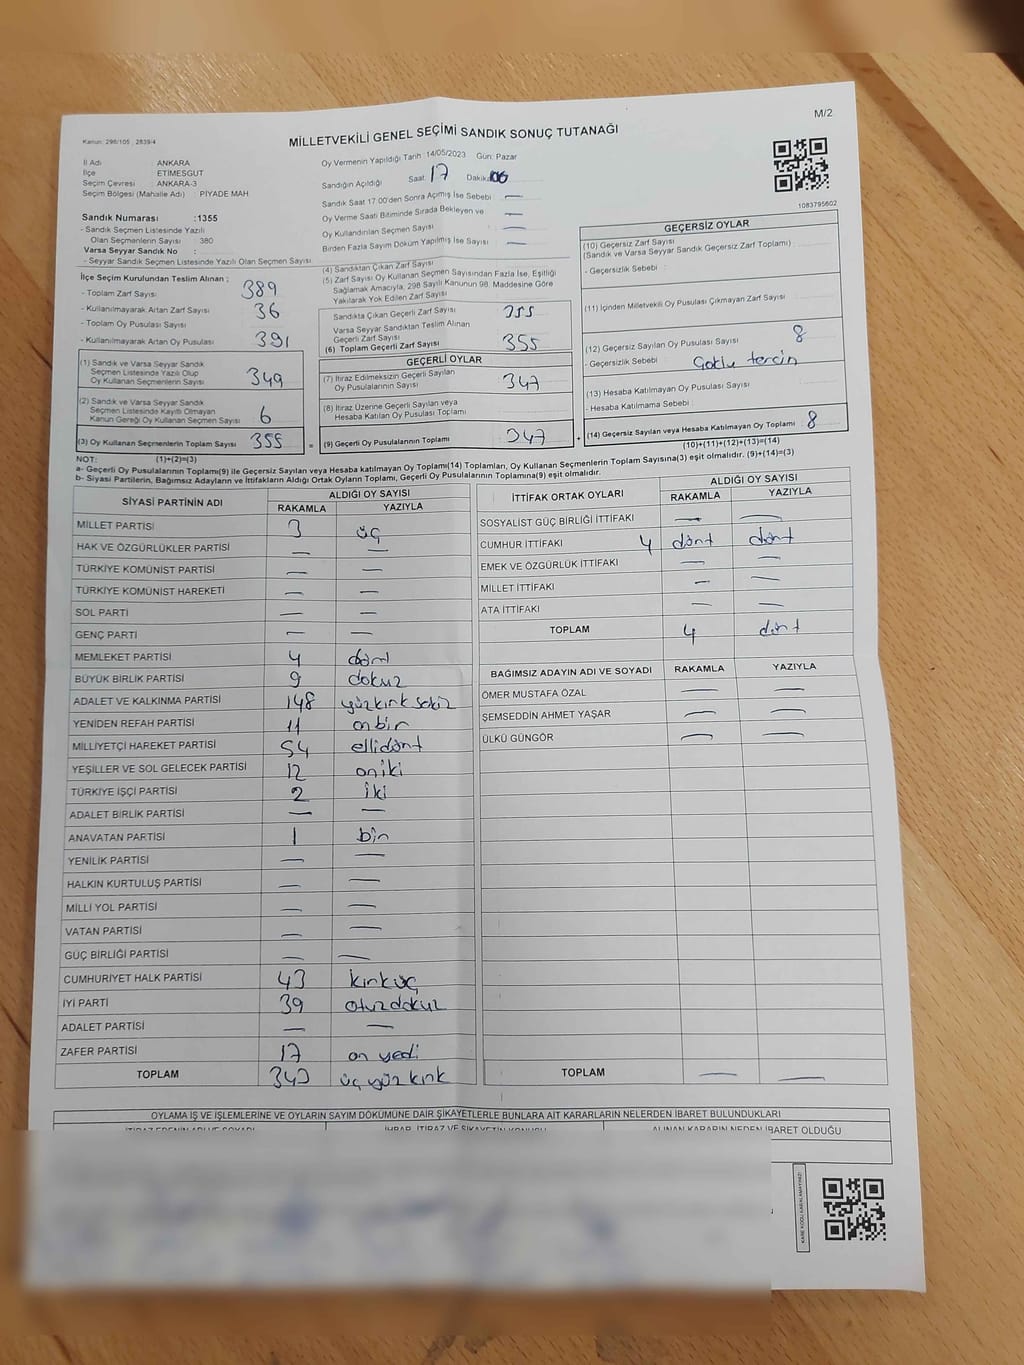 M/2
Kanun: 298/105 , 2839/4
MİLLETVEKİLİ GENEL SEÇİMİ SANDIK SONUÇ TUTANAĞI
İl Adı : ANKARA
İlçe : ETİMESGUT
Seçim Çevresi : ANKARA-3
Seçim Bölgesi (Mahalle Adı) : PİYADE MAH
Oy Vermenin Yapıldığı Tarih :14/05/2023 Gün: Pazar
Sandığın Açıldığı Saat: 17 Dakika:
Sandık Saat 17:00'den Sonra Açmış İse Sebebi : —
Oy Verme Saati Bitiminde Sırada Bekleyen ve
Oy Kullandırılan Seçmen Sayısı : —
Birden Fazla Sayım Döküm Yapılmış İse Sayısı : —
1083795602
Sandık Numarası :1355
- Sandık Seçmen Listesinde Yazılı
Olan Seçmenlerin Sayısı : 380
Varsa Seyyar Sandık No :
- Seyyar Sandık Seçmen Listesinde Yazılı Olan Seçmen Sayısı:
İlçe Seçim Kurulundan Teslim Alınan ;
- Toplam Zarf Sayısı : 389
- Kullanılmayarak Artan Zarf Sayısı : 36
- Toplam Oy Pusulası Sayısı :
- Kullanılmayarak Artan Oy Pusulası : 391
(1) Sandık ve Varsa Seyyar Sandık
Seçmen Listesinde Yazılı Olup
Oy Kullanan Seçmenlerin Sayısı : 349
(2) Sandık ve Varsa Seyyar Sandık
Seçmen Listesinde Kayıtlı Olmayan
Kanun Gereği Oy Kullanan Seçmen Sayısı : 6
(3) Oy Kullanan Seçmenlerin Toplam Sayısı : 355
(4) Sandıktan Çıkan Zarf Sayısı :
(5) Zarf Sayısı Oy Kullanan Seçmen Sayısından Fazla İse, Eşitliği
Sağlamak Amacıyla, 298 Sayılı Kanunun 98. Maddesine Göre
Yakılarak Yok Edilen Zarf Sayısı :
Sandıkta Çıkan Geçerli Zarf Sayısı : 355
Varsa Seyyar Sandıktan Teslim Alınan
Geçerli Zarf Sayısı :
(6) Toplam Geçerli Zarf Sayısı : 355
GEÇERLİ OYLAR
(7) İtiraz Edilmeksizin Geçerli Sayılan
Oy Pusulalarının Sayısı : 347
(8) İtiraz Üzerine Geçerli Sayılan veya
Hesaba Katılan Oy Pusulası Toplamı :
= (9) Geçerli Oy Pusulalarının Toplamı : 347 +
GEÇERSİZ OYLAR
(10) Geçersiz Zarf Sayısı :
(Sandık ve Varsa Seyyar Sandık Geçersiz Zarf Toplamı)
- Geçersizlik Sebebi :
(11) İçinden Milletvekili Oy Pusulası Çıkmayan Zarf Sayısı :
(12) Geçersiz Sayılan Oy Pusulası Sayısı : 8
- Geçersizlik Sebebi : Çoklu tercih
(13) Hesaba Katılmayan Oy Pusulası Sayısı :
- Hesaba Katılmama Sebebi :
(14) Geçersiz Sayılan veya Hesaba Katılmayan Oy Toplamı : 8
NOT: (1)+(2)=(3)
(10)+(11)+(12)+(13)=(14)
a- Geçerli Oy Pusulalarının Toplamı(9) ile Geçersiz Sayılan veya Hesaba katılmayan Oy Toplamı(14) Toplamları, Oy Kullanan Seçmenlerin Toplam Sayısına(3) eşit olmalıdır. (9)+(14)=(3)
b- Siyasi Partilerin, Bağımsız Adayların ve İttifakların Aldığı Ortak Oyların Toplamı, Geçerli Oy Pusulalarının Toplamına(9) eşit olmalıdır.
SİYASİ PARTİNİN ADI ALDIĞI OY SAYISI
RAKAMLA YAZIYLA
MİLLET PARTİSİ 3 üç
HAK VE ÖZGÜRLÜKLER PARTİSİ — —
TÜRKİYE KOMÜNİST PARTİSİ — —
TÜRKİYE KOMÜNİST HAREKETİ — —
SOL PARTİ — —
GENÇ PARTİ — —
MEMLEKET PARTİSİ 4 dört
BÜYÜK BİRLİK PARTİSİ 9 dokuz
ADALET VE KALKINMA PARTİSİ 148 yüzkırk sekiz
YENİDEN REFAH PARTİSİ 11 onbir
MİLLİYETÇİ HAREKET PARTİSİ 54 ellidört
YEŞİLLER VE SOL GELECEK PARTİSİ 12 oniki
TÜRKİYE İŞÇİ PARTİSİ 2 iki
ADALET BİRLİK PARTİSİ — —
ANAVATAN PARTİSİ 1 bir
YENİLİK PARTİSİ — —
HALKIN KURTULUŞ PARTİSİ — —
MİLLİ YOL PARTİSİ — —
VATAN PARTİSİ — —
GÜÇ BİRLİĞİ PARTİSİ — —
CUMHURİYET HALK PARTİSİ 43 kırküç
İYİ PARTİ 39 otuzdokuz
ADALET PARTİSİ — —
ZAFER PARTİSİ 17 on yedi
TOPLAM 343 üç yüz kırk
İTTİFAK ORTAK OYLARI ALDIĞI OY SAYISI
RAKAMLA YAZIYLA
SOSYALİST GÜÇ BİRLİĞİ İTTİFAKI — —
CUMHUR İTTİFAKI 4 dört dört
EMEK VE ÖZGÜRLÜK İTTİFAKI — —
MİLLET İTTİFAKI — —
ATA İTTİFAKI — —
TOPLAM 4 dört
BAĞIMSIZ ADAYIN ADI VE SOYADI RAKAMLA YAZIYLA
ÖMER MUSTAFA ÖZAL — —
ŞEMSEDDİN AHMET YAŞAR — —
ÜLKÜ GÜNGÖR — —
TOPLAM — —
OYLAMA İŞ VE İŞLEMLERİNE VE OYLARIN SAYIM DÖKÜMÜNE DAİR ŞİKAYETLERLE BUNLARA AİT KARARLARIN NELERDEN İBARET BULUNDUKLARI
İTİRAZ EDENİN ADI VE SOYADI İHBAR, İTİRAZ VE ŞİKAYETİN KONUSU ALINAN KARARIN NEDEN İBARET OLDUĞU